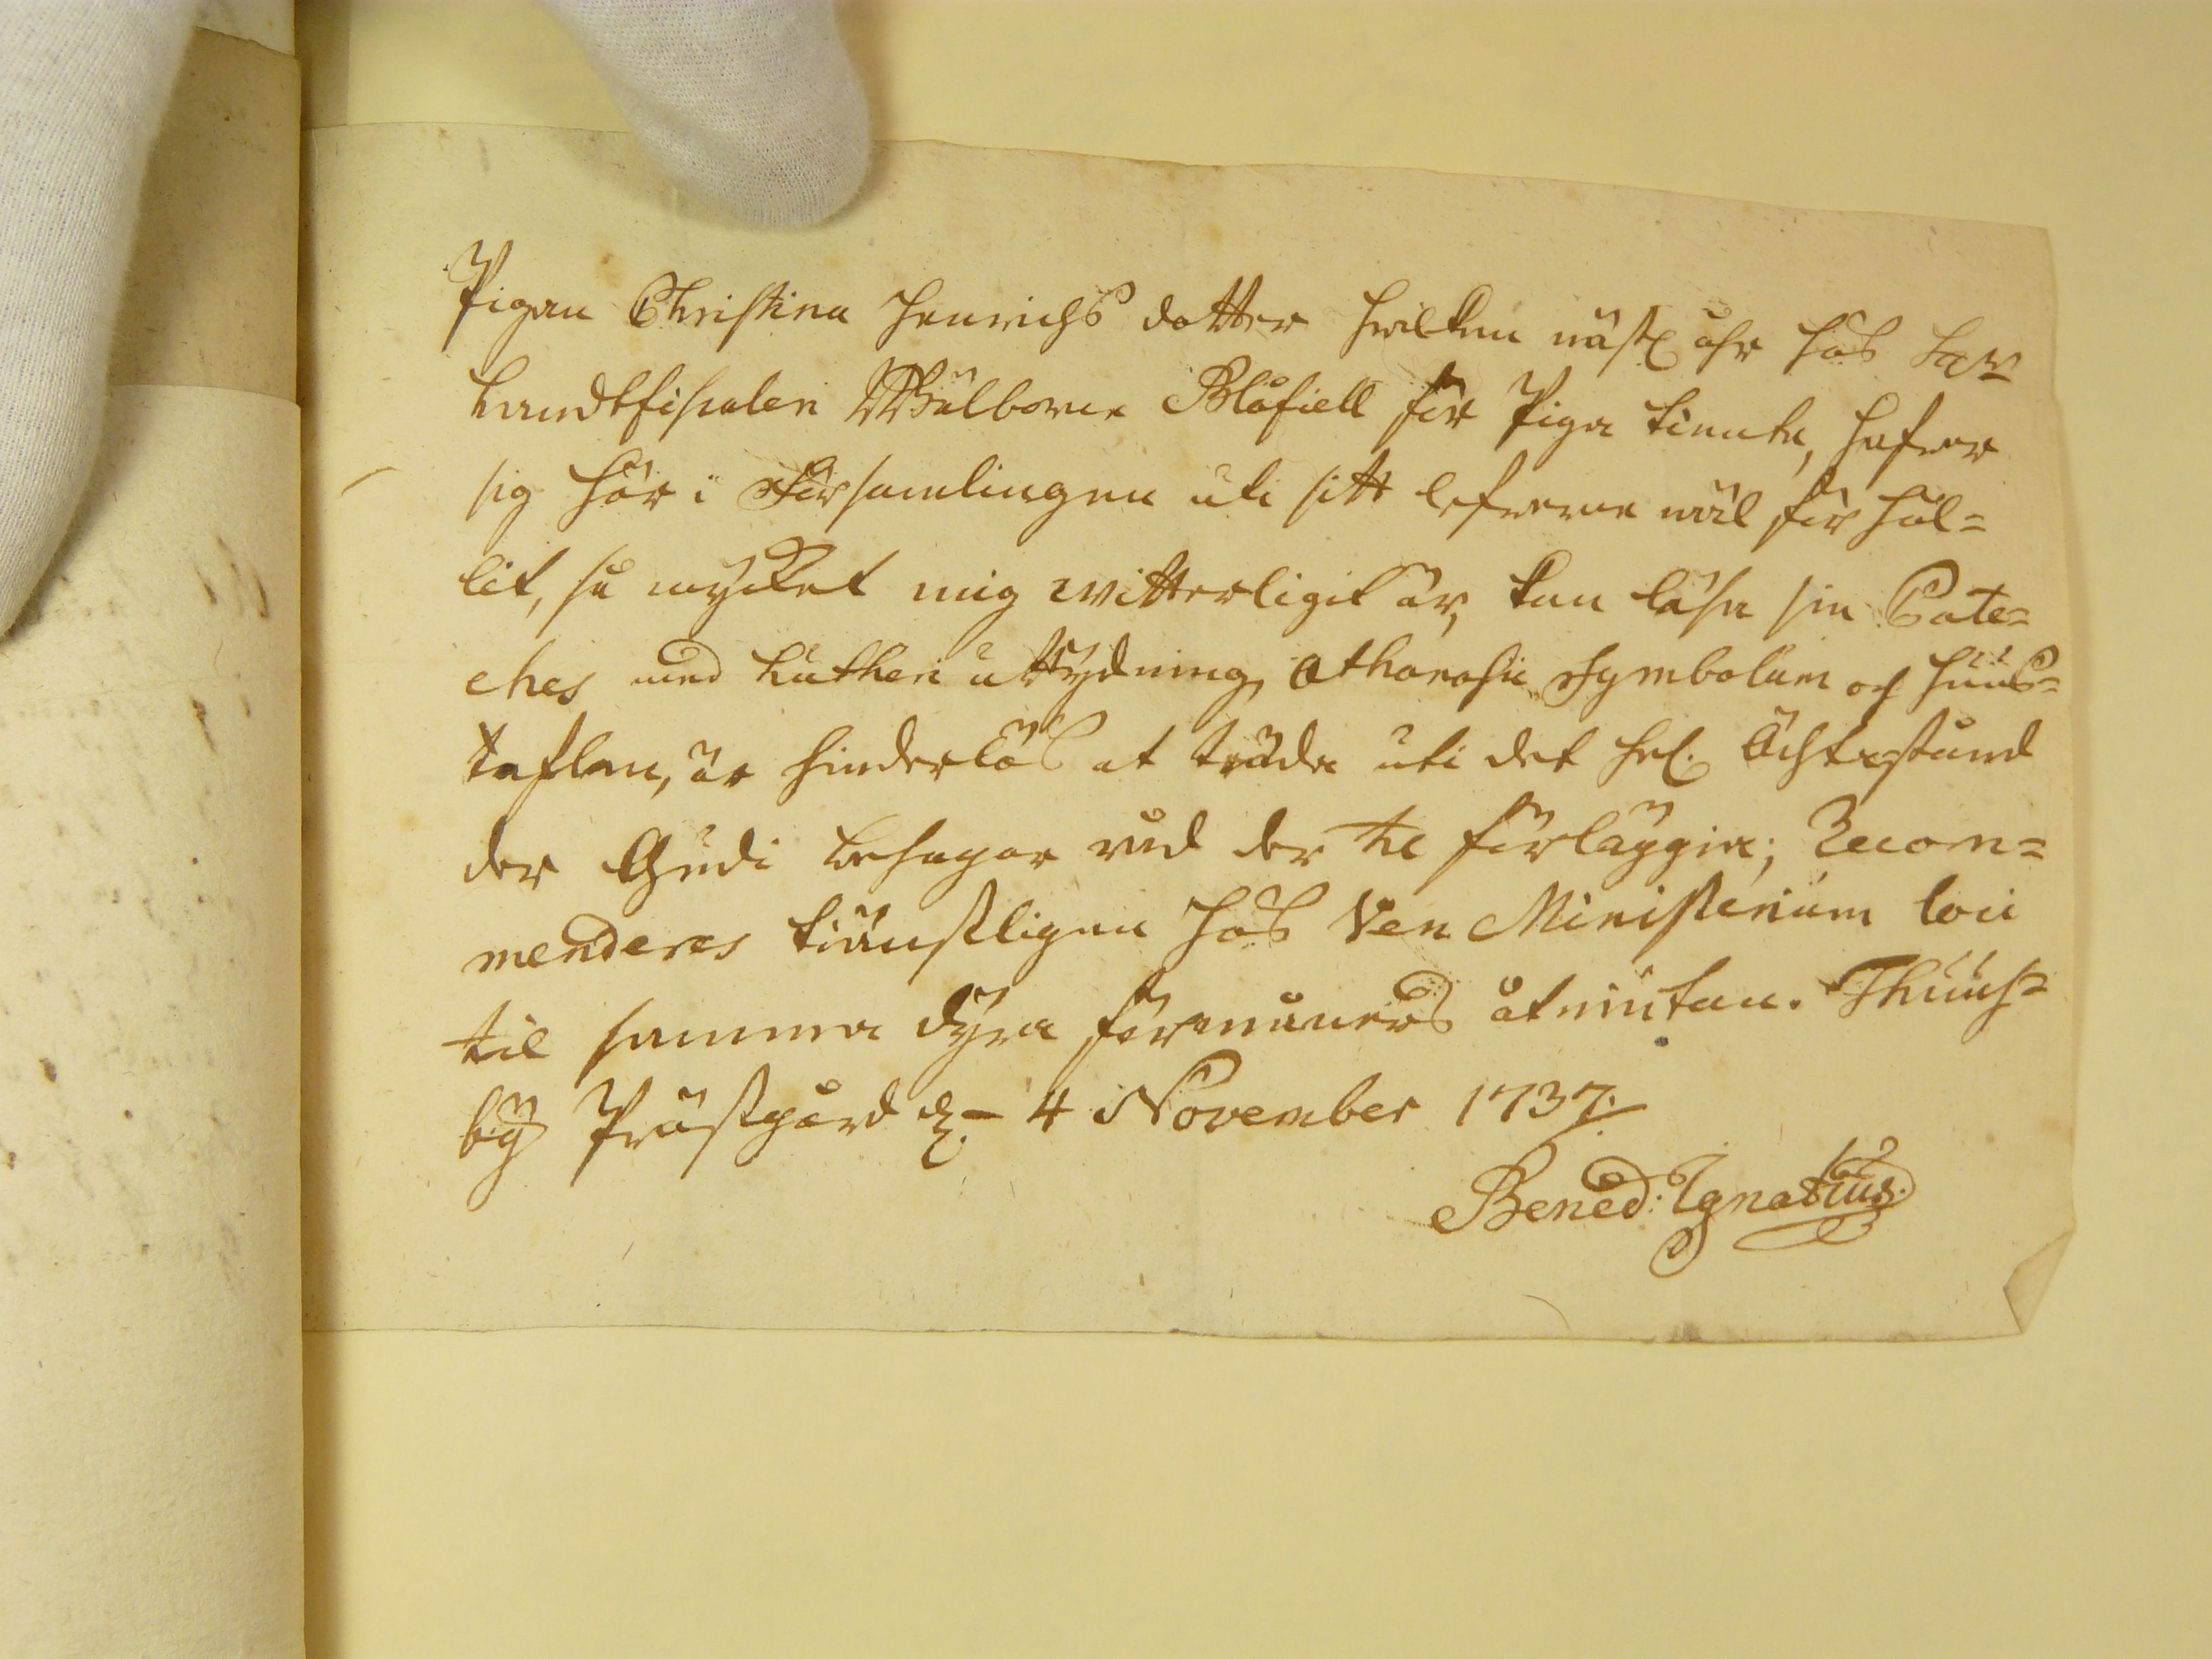 Pigan Christina Henrichs dotter hwilken näst åhr hos Hr
Landtfiscalen Wälborne Blåfiell för Piga tient, hafwer
sig här i Församlingen uti sitt lefwerne wäl förhål=
lit, så mycket mig witterligit är, kan läsa sin Cate=
ches med Lutheri uttydning, Athanasii Symbolum och Huus=
taflan, är hinderlös at träda uti det hel. Ächtastånd
der Gudi behagar wid der til förläggia; Recom=
menderes tiänstligen hos Ven. Ministerium loci
til samma dyra förmåners åtniutan. Thuus=
by Prästgård d. 4 November 1737.
Bened: Ignatius.